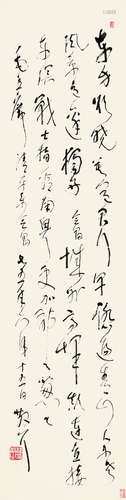 東方欲曉莫道君行早踏遍青山人未老
風景這邊獨好會昌城外高峰顛連直接
東溟戰士指看南粵更加郁郁葱葱
毛主席清平樂會昌 年八月十五日